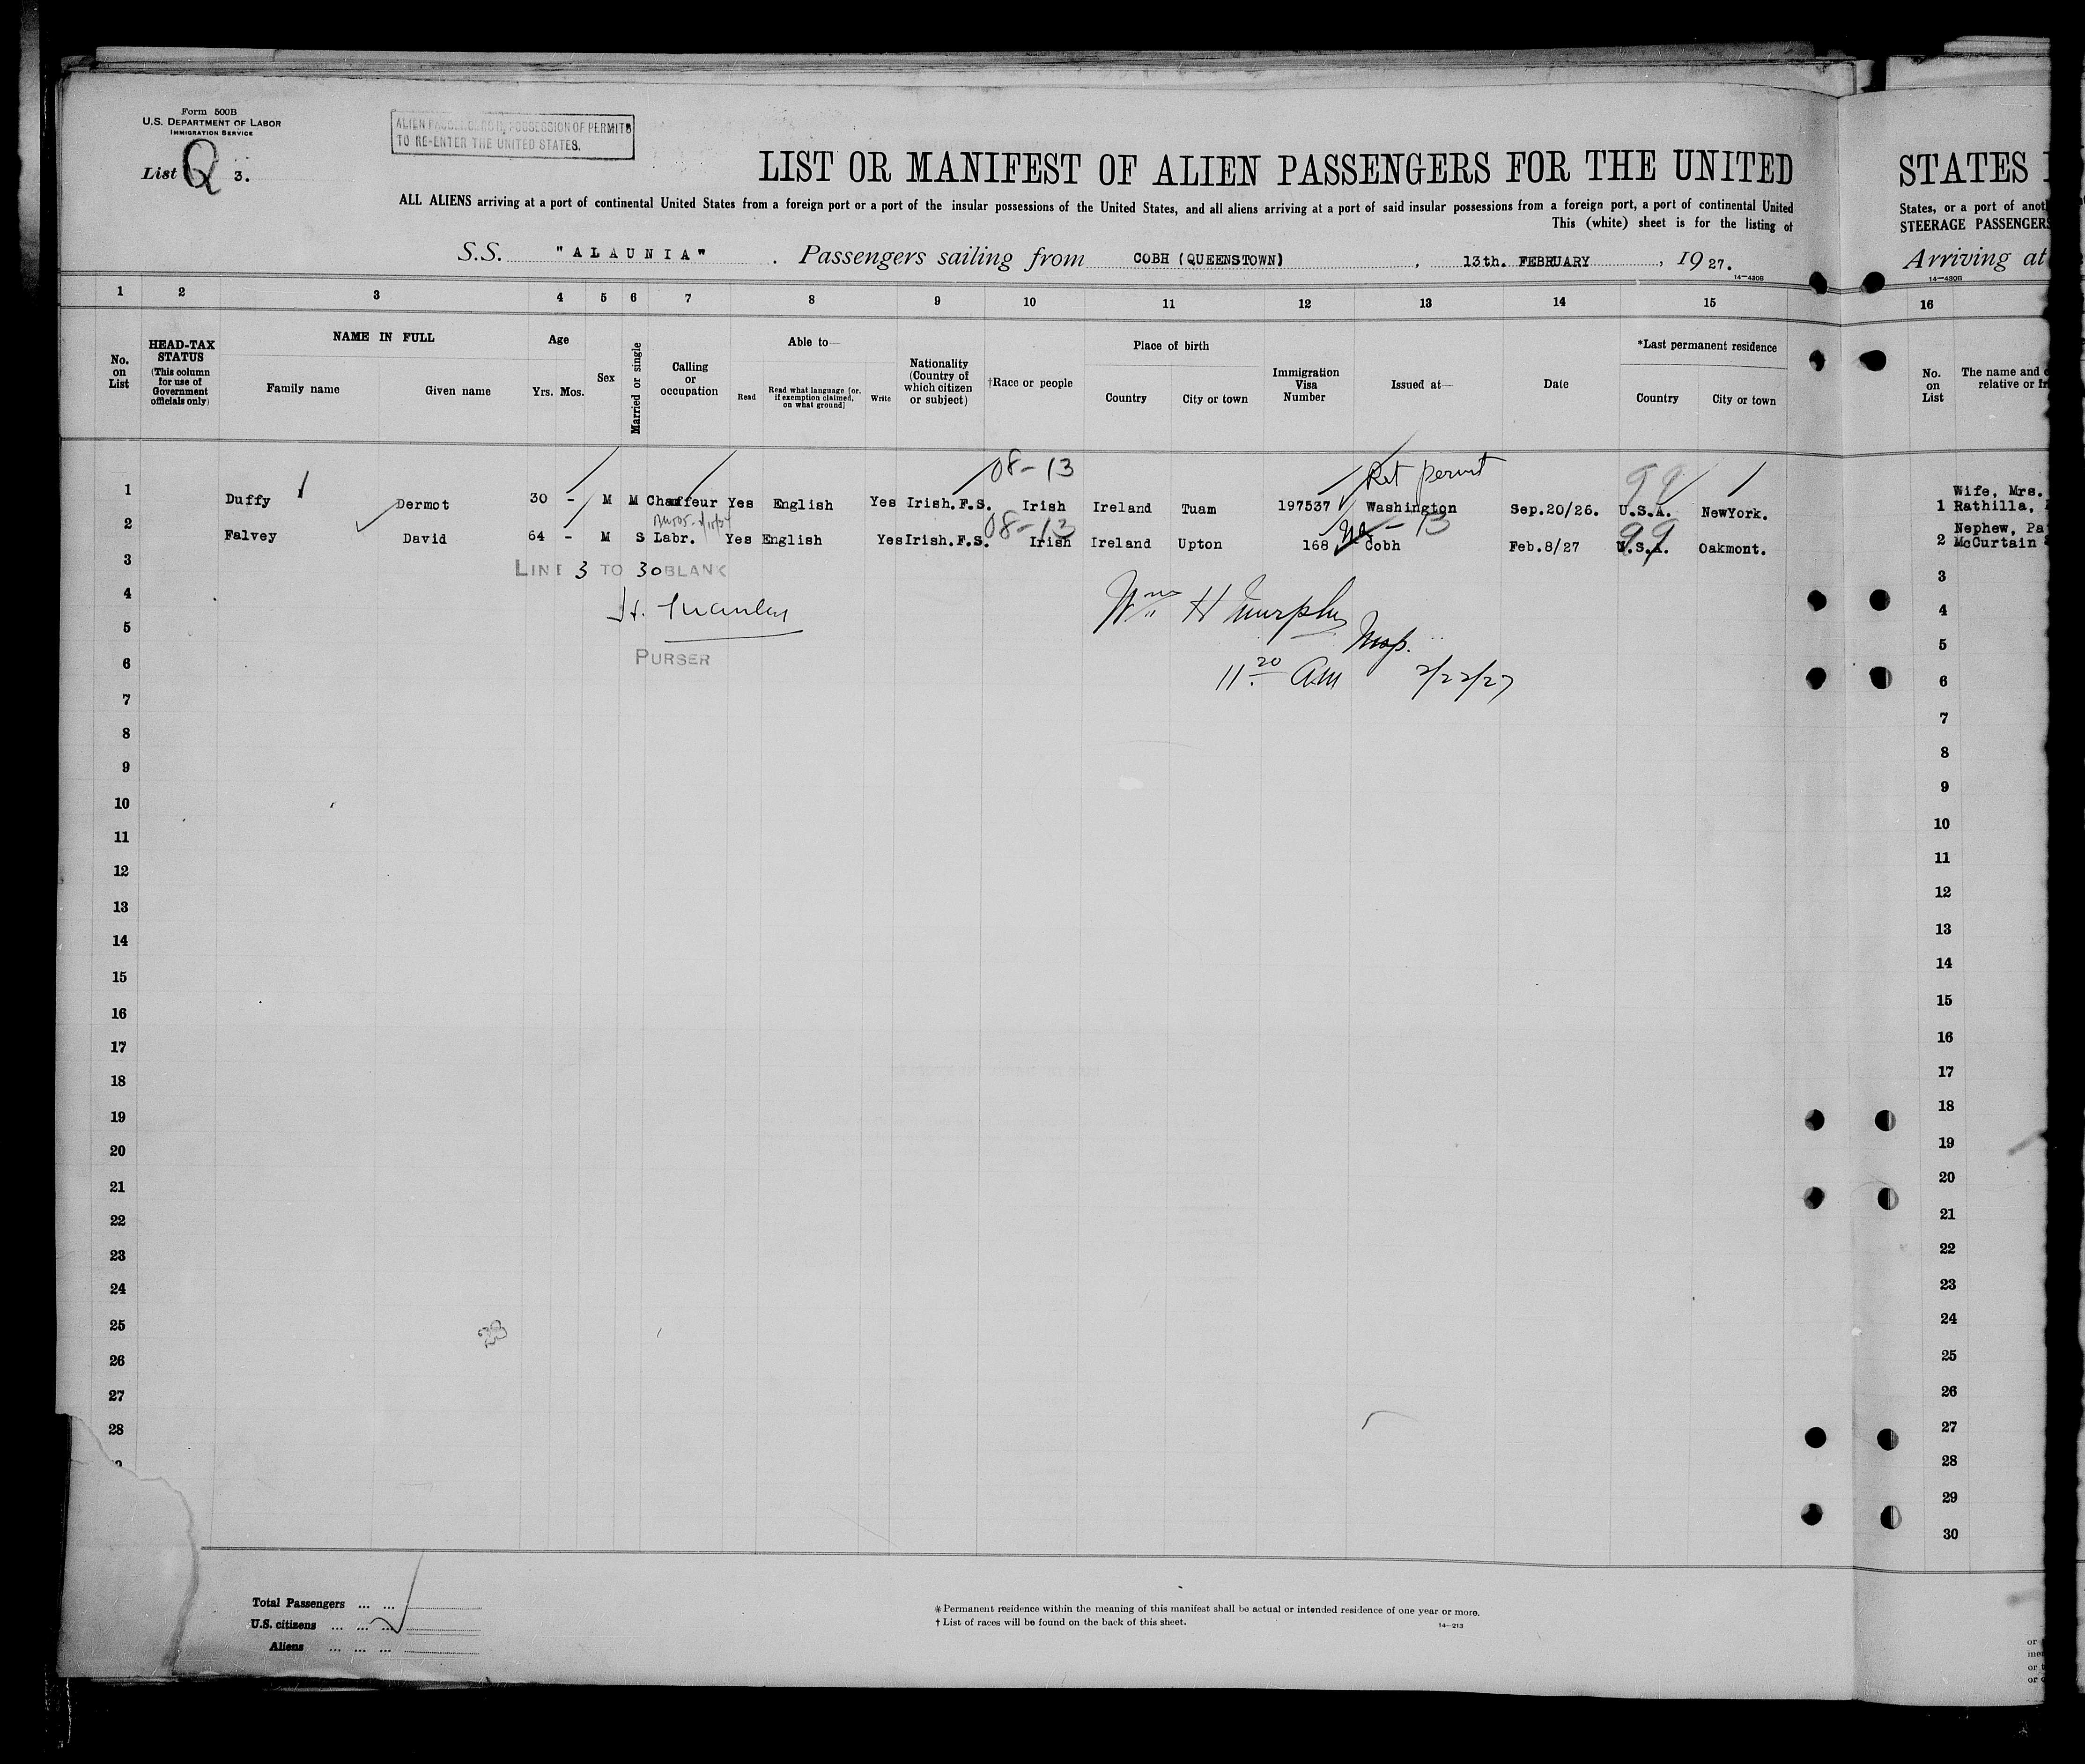 Form 500B
U.S. DEPARTMENT OF LABOR
IMMIGRATION SERVICE
List Q 3.
ALIEN PASSENGERS IN POSSESSION OF PERMITS
TO RE-ENTER THE UNITED STATES.
LIST OR MANIFEST OF ALIEN PASSENGERS FOR THE UNITED
ALL ALIENS arriving at a port of continental United States from a foreign port or a port of the insular possessions of the United States, and all aliens arriving at a port of said insular possessions from a foreign port, a port of continental United
This (white) sheet is for the listing of
S.S. "ALAUNIA" . Passengers sailing from COBH (QUEENSTOWN) , 13th. FEBRUARY , 1927.
14-430B
1 2 3 4 5 6 7 8 9 10 11 12 13 14 15
No. on List
HEAD-TAX STATUS
(This column for use of Government officials only)
NAME IN FULL
Family name Given name
Age
Yrs. Mos.
Sex
Married or single
Calling or occupation
Able to—
Read
Read what language [or, if exemption claimed, on what ground]
Write
Nationality (Country of which citizen or subject)
†Race or people
Place of birth
Country City or town
Immigration Visa Number
Issued at—
Date
*Last permanent residence
Country City or town
08-13 Ret permit 99
1 Duffy Dermot 30 - M M Chauffeur Yes English Yes Irish.F.S. Irish Ireland Tuam 197537 Washington Sep.20/26. U.S.A. NewYork.
08-13 13 99
2 Falvey David 64 - M S Labr. Yes English Yes Irish.F.S. Irish Ireland Upton 168 Cobh Feb.8/27 U.S.A. Oakmont.
3
LINE 3 TO 30 BLANK
4
Wm H Murphy
5
Insp.
PURSER
6
11 20 AM 2/22/27
7
8
9
10
11
12
13
14
15
16
17
18
19
20
21
22
23
24
25
26
27
28
Total Passengers ... ...
U.S. citizens ... ... ...
Aliens ... ... ...
* Permanent residence within the meaning of this manifest shall be actual or intended residence of one year or more.
† List of races will be found on the back of this sheet.
14-213
STATES
States, or a port of
STEERAGE PASSENGERS
Arriving at
14-430B
16
No. on List
The name and
relative or
Wife, Mrs.
1 Rathilla,
Nephew,
2 McCurtain
3
4
5
6
7
8
9
10
11
12
13
14
15
16
17
18
19
20
21
22
23
24
25
26
27
28
29
30
or
or
or